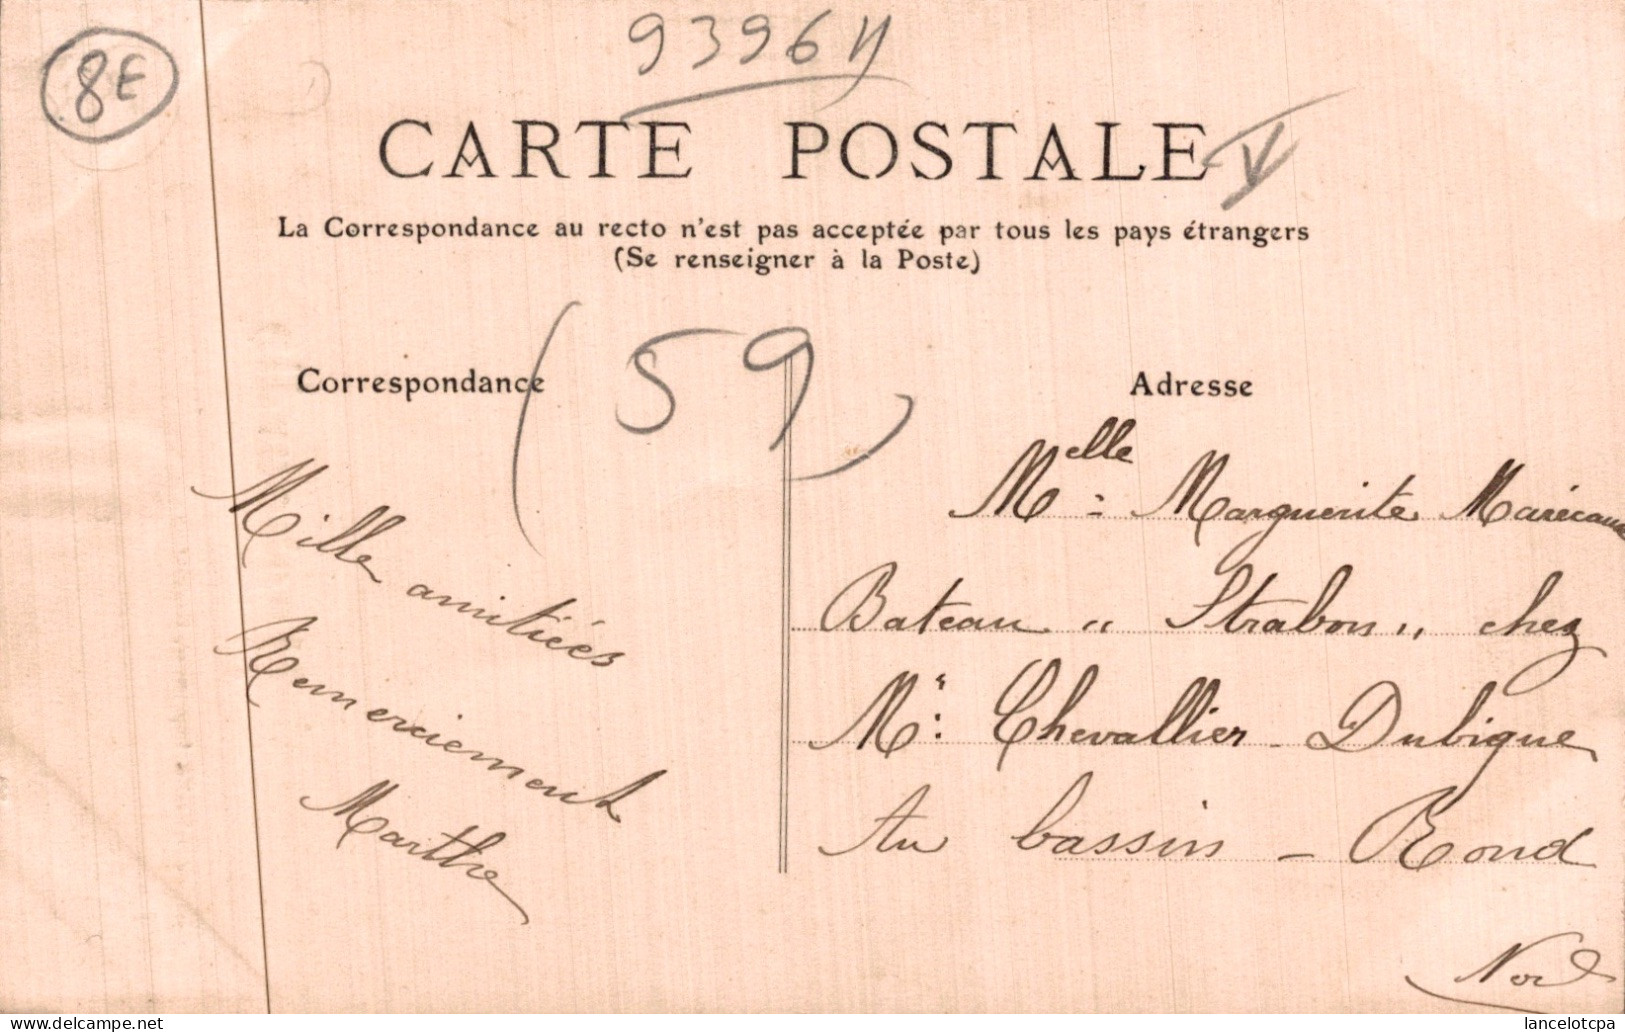 8E
93964
CARTE POSTALE
V
La Correspondance au recto n'est pas acceptée par tous les pays étrangers
(Se renseigner à la Poste)
(59)
Correspondance
Mille amitiées
Remerciement
Marthe
Adresse
Melle Marguerite Marécaux
Bateau "Strabon" chez
Mr: Chevallier - Dubigue
Au bassin - Rond
Nord
lancelotcpa